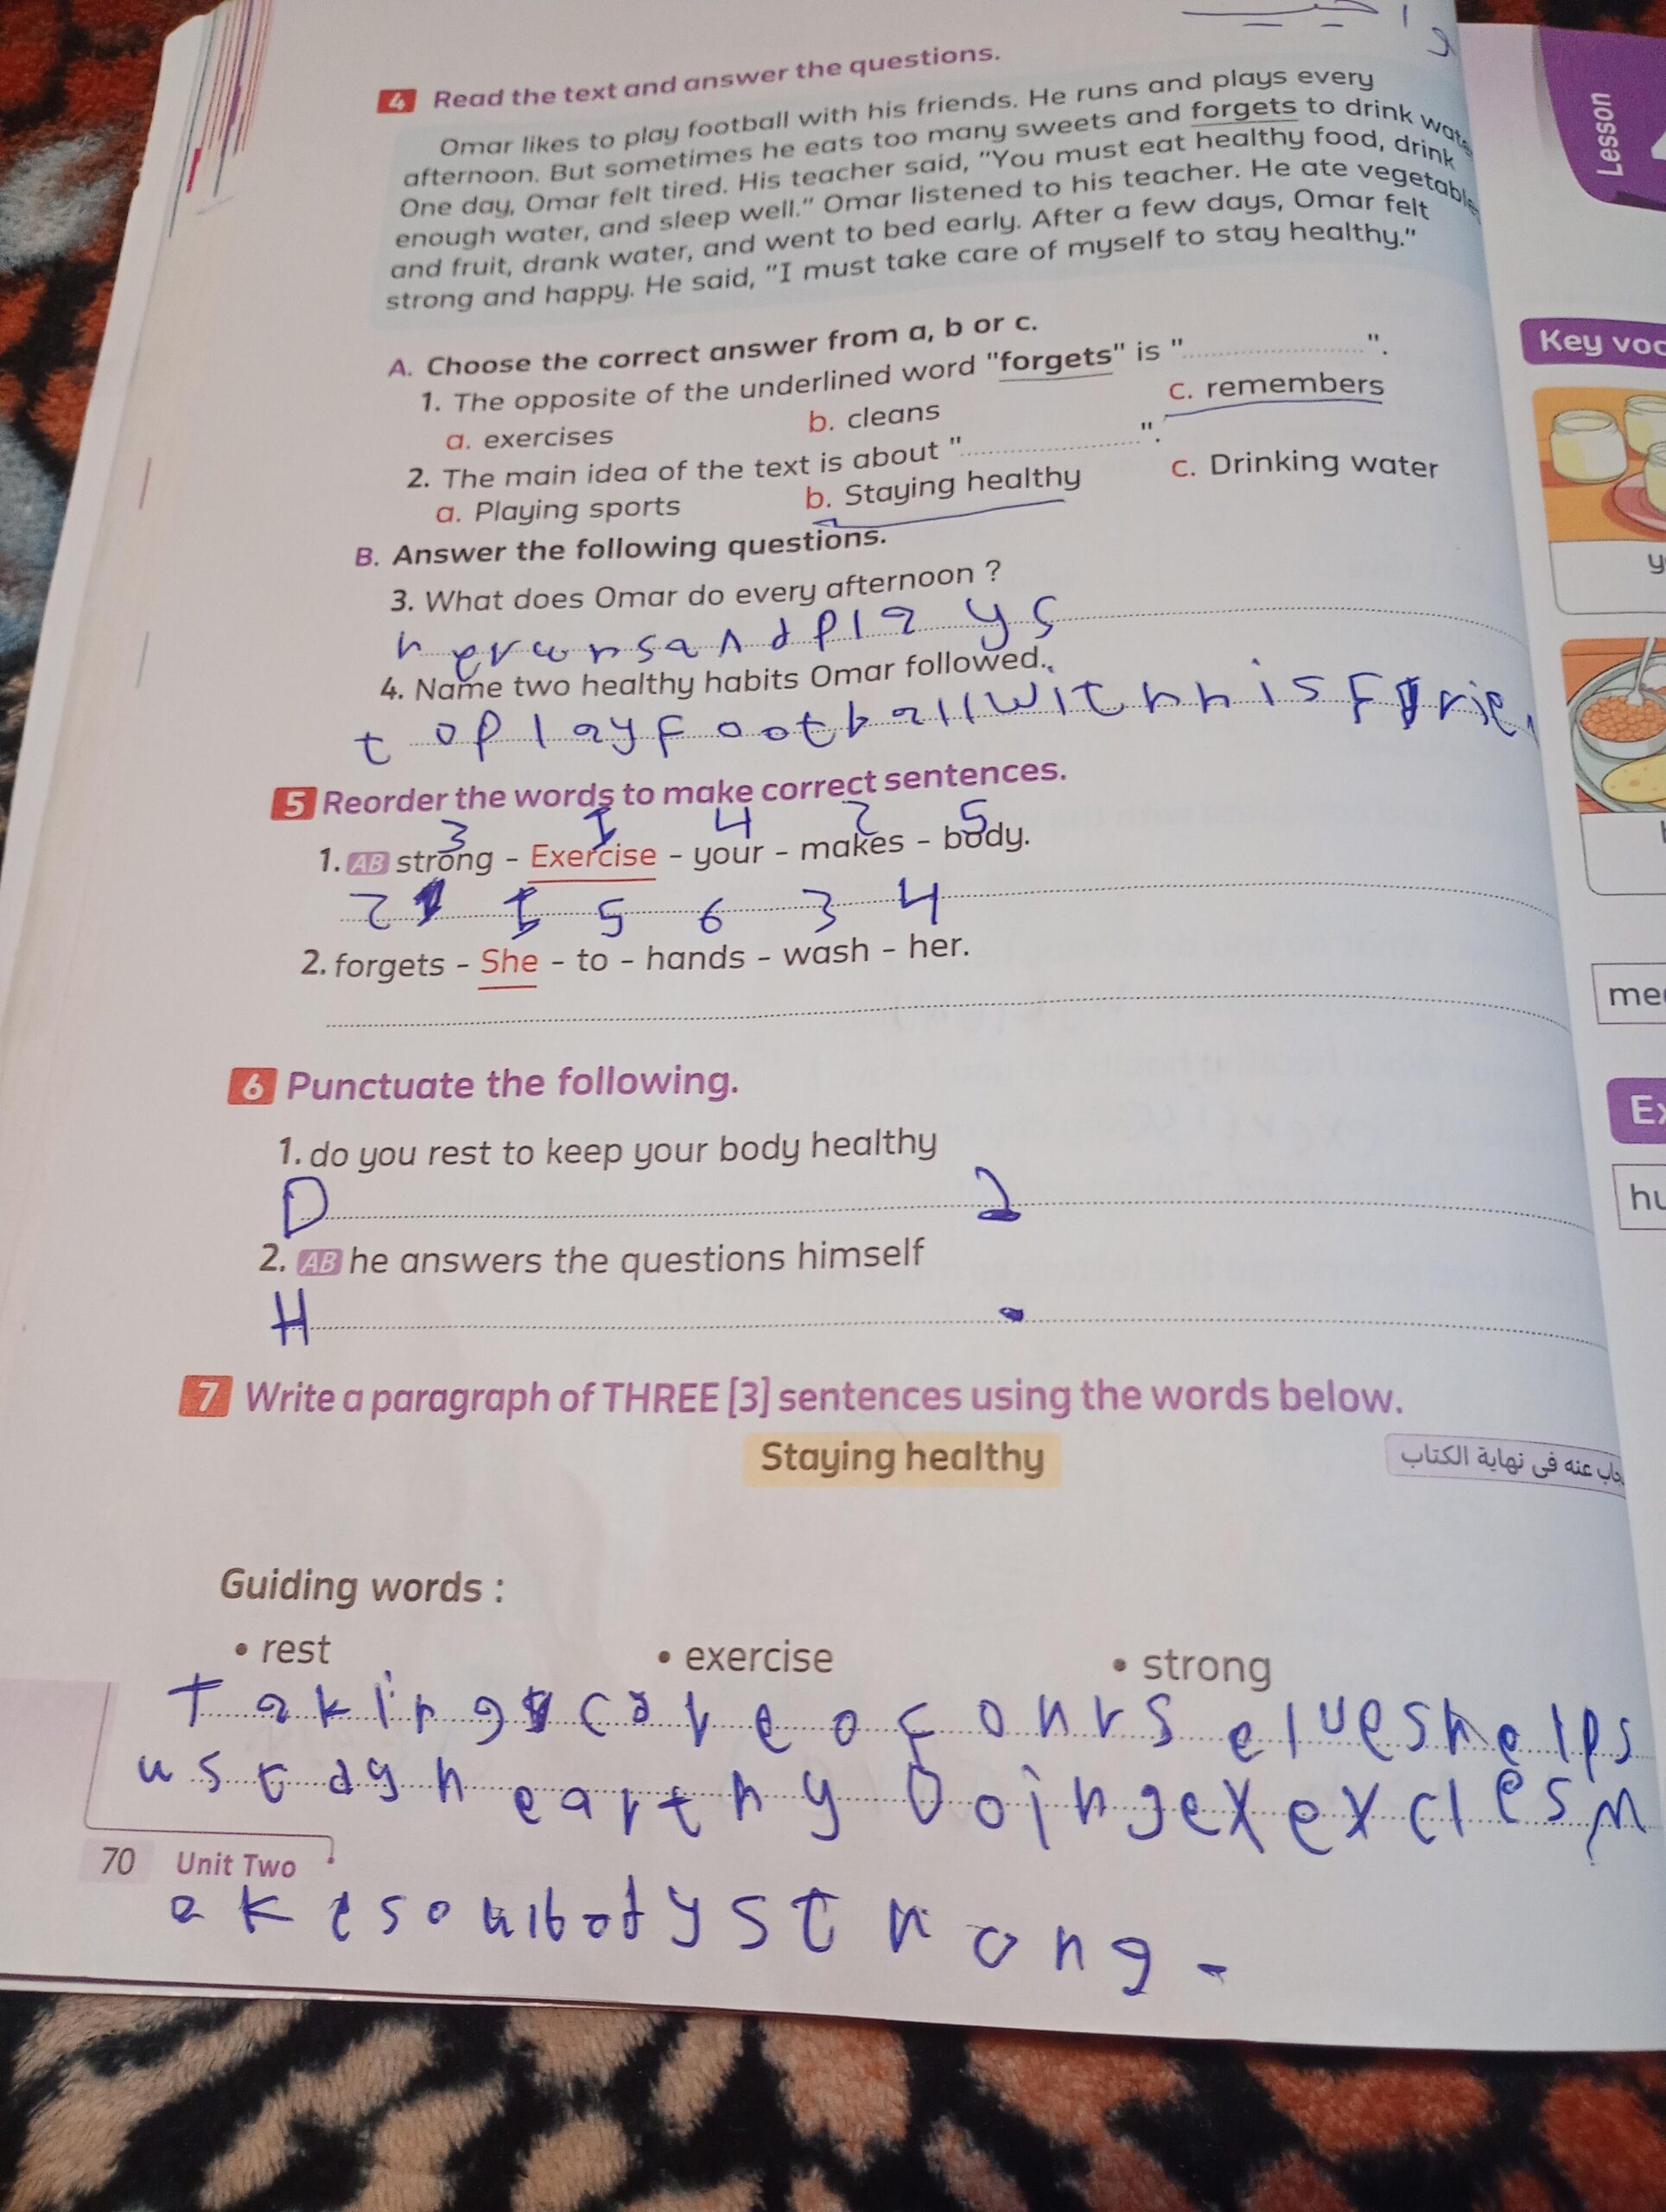 4 Read the text and answer the questions.
Omar likes to play football with his friends. He runs and plays every
afternoon. But sometimes he eats too many sweets and forgets to drink wate
One day, Omar felt tired. His teacher said, "You must eat healthy food, drink
enough water, and sleep well." Omar listened to his teacher. He ate vegetable
and fruit, drank water, and went to bed early. After a few days, Omar felt
strong and happy. He said, "I must take care of myself to stay healthy."
A. Choose the correct answer from a, b or c.
1. The opposite of the underlined word "forgets" is "....................".
a. exercises b. cleans c. remembers
2. The main idea of the text is about "....................".
a. Playing sports b. Staying healthy c. Drinking water
B. Answer the following questions.
3. What does Omar do every afternoon ?
he runs and plays
4. Name two healthy habits Omar followed.
to play football with his frie
5 Reorder the words to make correct sentences.
3 1 4 2 5
1. AB strong - Exercise - your - makes - body.
2 1 5 6 3 4
2. forgets - She - to - hands - wash - her.
6 Punctuate the following.
1. do you rest to keep your body healthy
D ?
2. AB he answers the questions himself
H .
7 Write a paragraph of THREE [3] sentences using the words below.
Staying healthy
عنه فى نهاية الكتاب
Guiding words :
• rest • exercise • strong
Taking care of ours elues helps
us
70 Unit Two
akes body strong.
Lesson
Key voc
me
Ex
hu